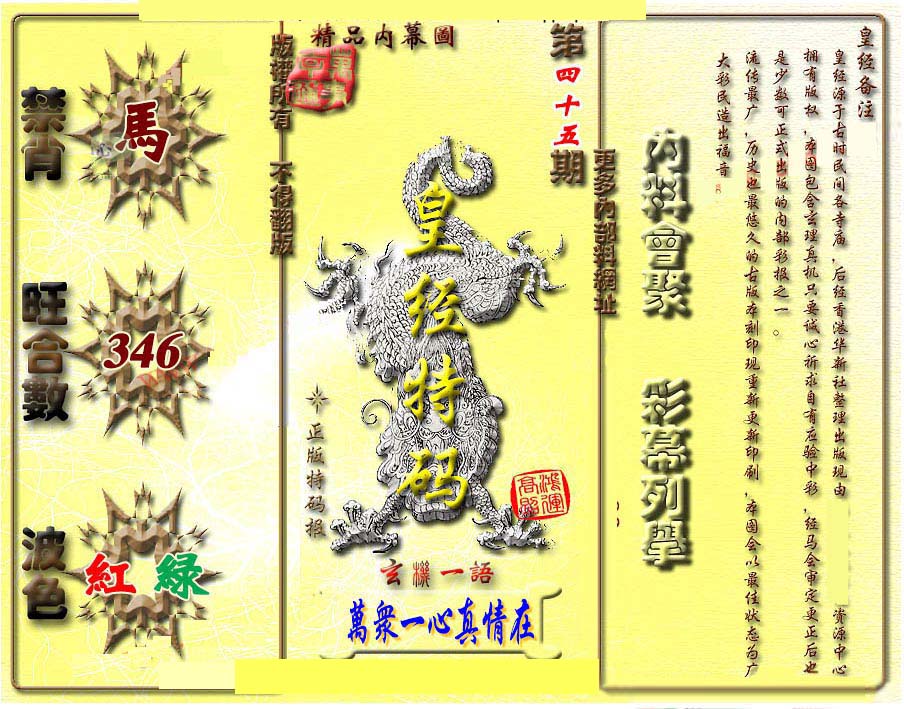 禁肖
馬
旺合數
346
波色
紅 綠
精品内幕圖
版權所有 不得翻版
第四十五期
皇经特码
正版特码报
鴻運高照
玄機一語
萬衆一心真情在
更多内部料網址
内料會聚 彩幕列舉
皇经备注
皇经源于古时民间各寺庙，后经香港华新社整理出版现由 资源中心
拥有版权，本图包含玄理真机只要诚心祈求自有应验中彩，经马会审定更正后也
是少数可正式出版的内部彩报之一。
流传最广，历史也最悠久的古版本刻印现重新更新印刷，本图会以最佳状态为广
大彩民造出福音